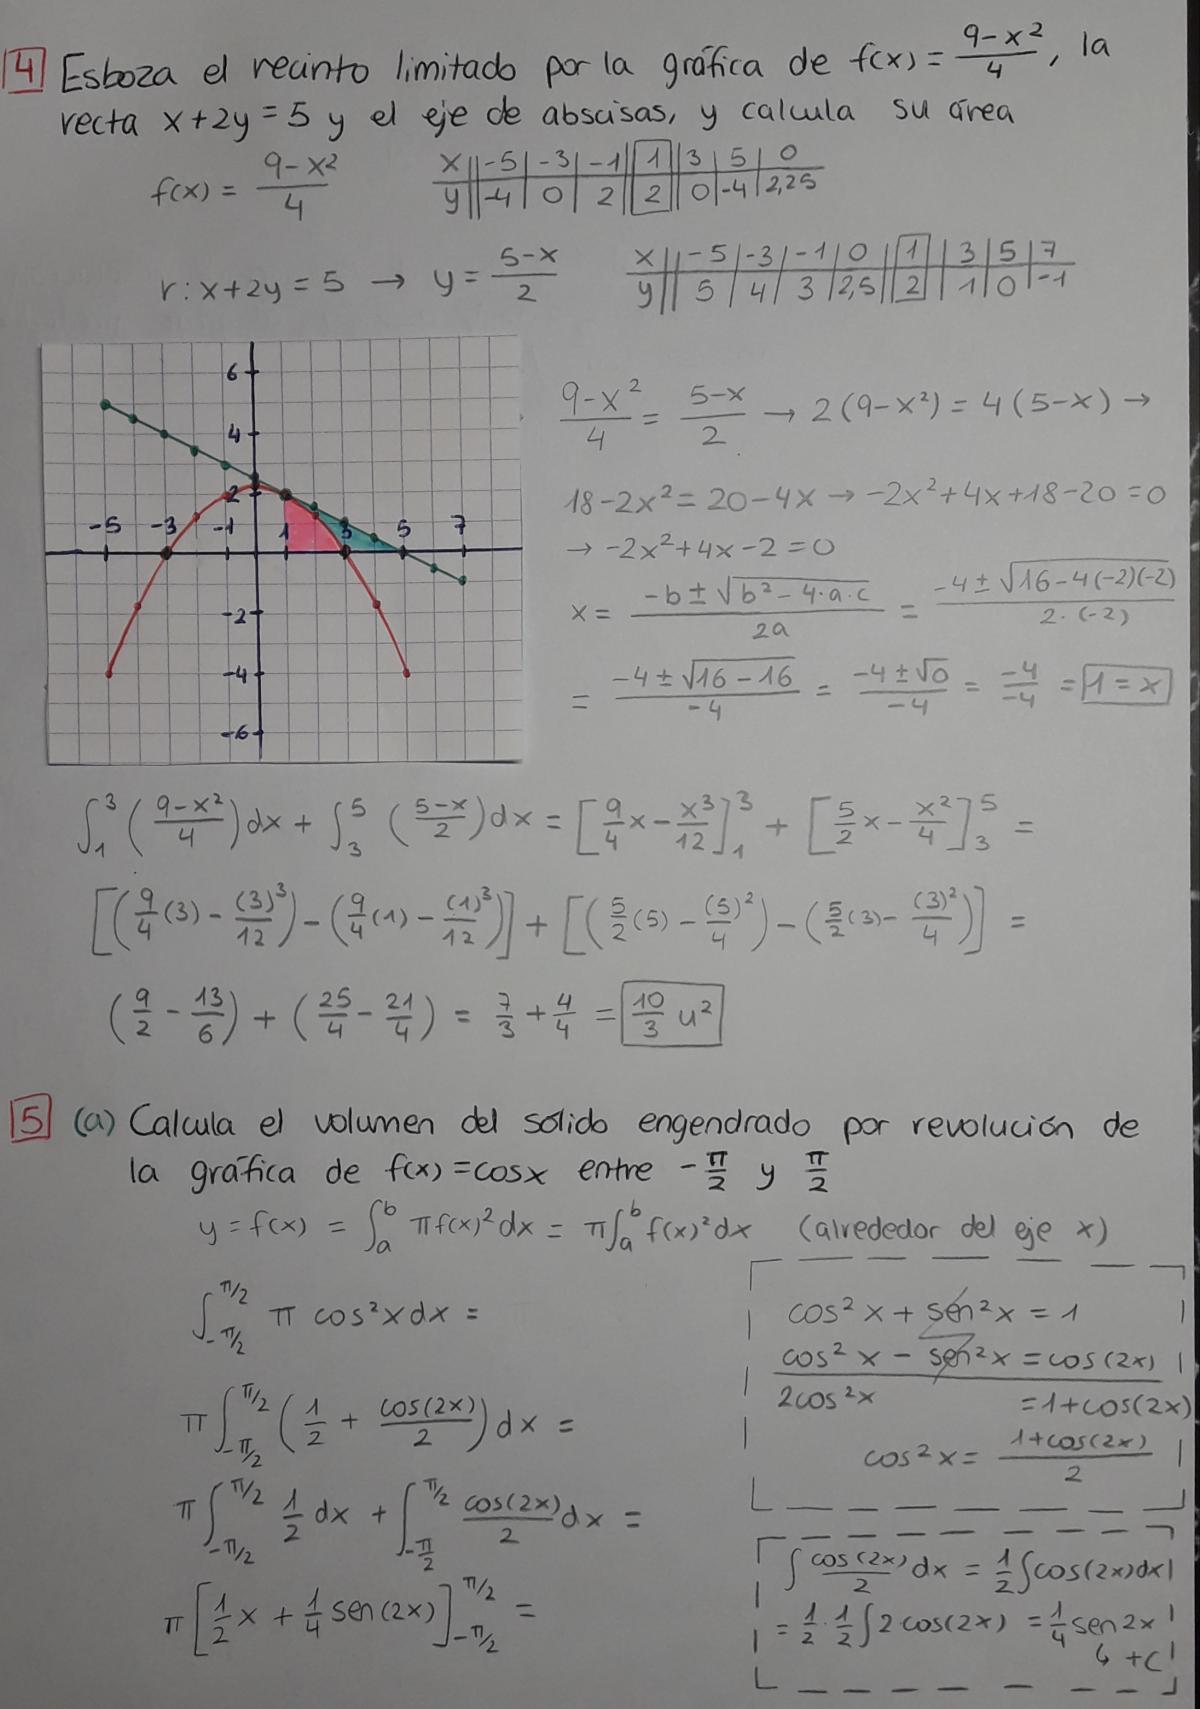 4 Esboza el recinto limitado por la gráfica de f(x) = (9-x²)/4, la
recta x+2y=5 y el eje de abscisas, y calcula su área
f(x) = (9-x²)/4
x || -5 | -3 | -1 || 1 || 3 | 5 | 0
y || -4 | 0 | 2 || 2 || 0 | -4 | 2,25
r: x+2y=5 → y = (5-x)/2
x || -5 | -3 | -1 | 0 || 1 || 3 | 5 | 7
y || 5 | 4 | 3 | 2,5 || 2 || 1 | 0 | -1
6
4
2
-5 -3 -1 1 3 5 7
-2
-4
-6
(9-x²)/4 = (5-x)/2 → 2(9-x²) = 4(5-x) →
18-2x² = 20-4x → -2x²+4x+18-20=0
→ -2x²+4x-2=0
x = (-b±√(b²-4·a·c))/2a = (-4±√(16-4(-2)(-2)))/(2·(-2))
= (-4±√(16-16))/-4 = (-4±√0)/-4 = -4/-4 = 1=x
∫₁³ ((9-x²)/4)dx + ∫₃⁵ ((5-x)/2)dx = [9/4 x - x³/12]₁³ + [5/2 x - x²/4]₃⁵ =
[(9/4 (3) - (3)³/12) - (9/4 (1) - (1)³/12)] + [(5/2 (5) - (5)²/4) - (5/2 (3) - (3)²/4)] =
(9/2 - 13/6) + (25/4 - 21/4) = 7/3 + 4/4 = 10/3 u²
5 (a) Calcula el volumen del sólido engendrado por revolución de
la gráfica de f(x)=cosx entre -π/2 y π/2
y = f(x) = ∫ₐᵇ πf(x)²dx = π∫ₐᵇ f(x)²dx (alrededor del eje x)
∫_{-π/2}^{π/2} π cos²x dx =
π∫_{-π/2}^{π/2} (1/2 + cos(2x)/2) dx =
π∫_{-π/2}^{π/2} 1/2 dx + ∫_{-π/2}^{π/2} cos(2x)/2 dx =
π[1/2 x + 1/4 sen(2x)]_{-π/2}^{π/2} =
cos²x + sen²x = 1
cos²x - sen²x = cos(2x)
2cos²x = 1+cos(2x)
cos²x = (1+cos(2x))/2
∫ cos(2x)/2 dx = 1/2 ∫cos(2x)dx
= 1/2 · 1/2 ∫2cos(2x) = 1/4 sen2x
↳ +C